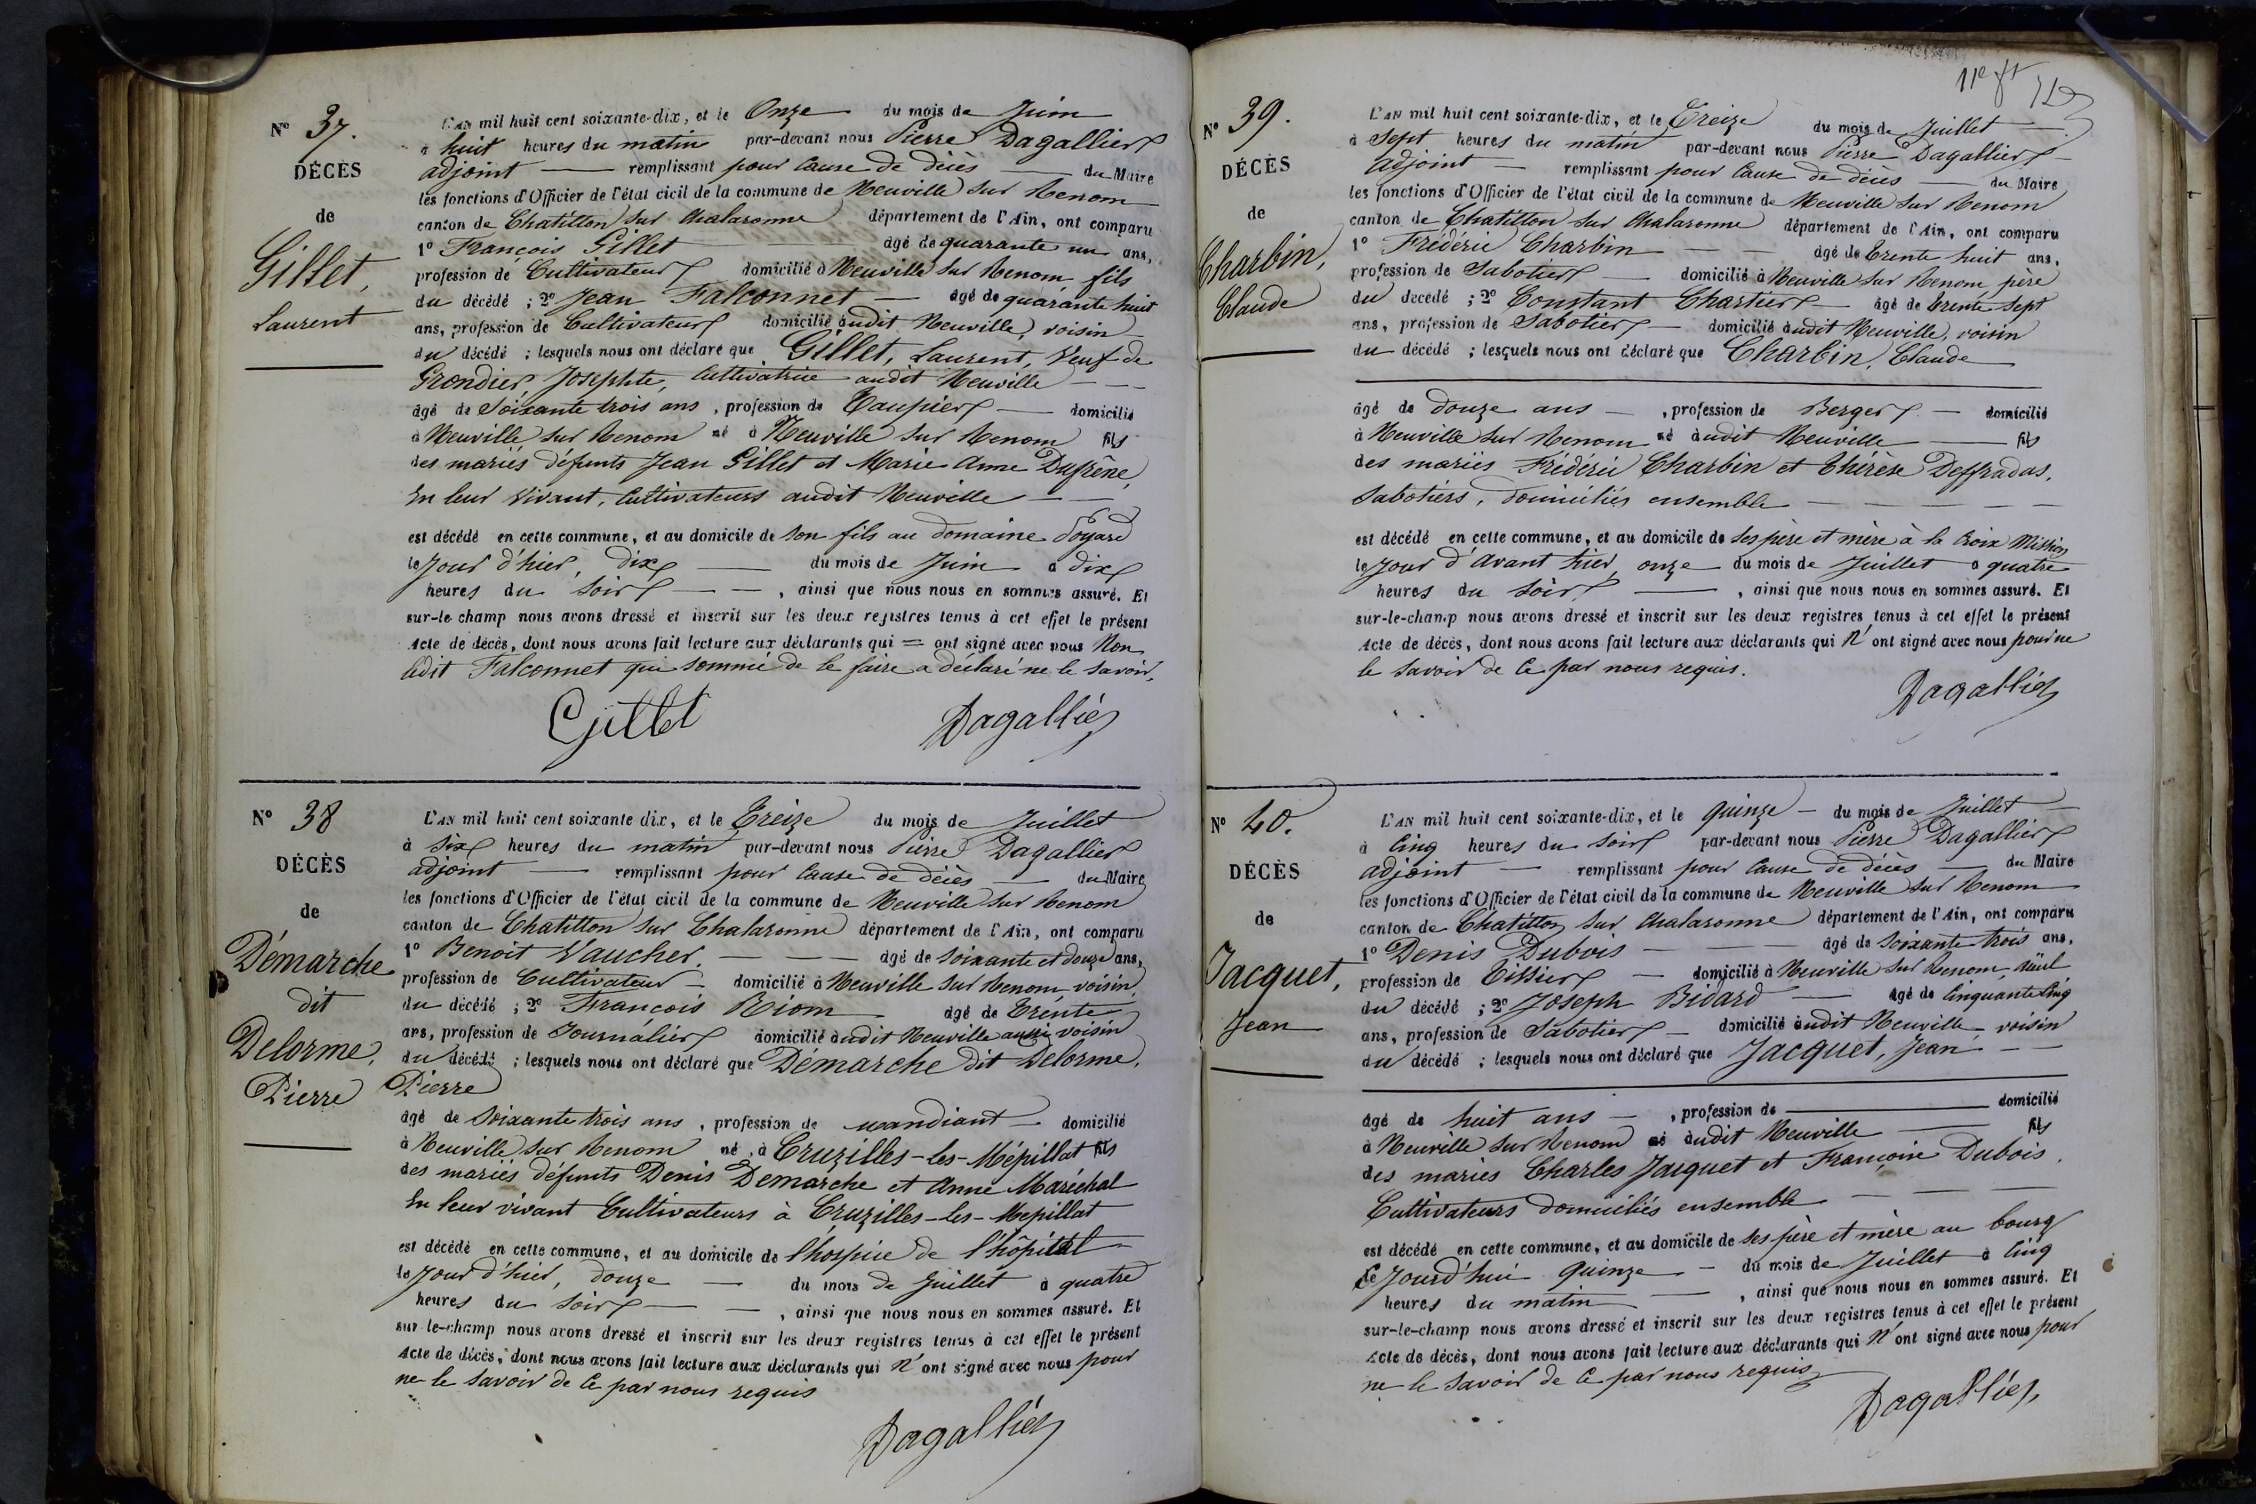 Nº 37.
DÉCÈS
de
Gillet,
Laurent
L'AN mil huit cent soixante-dix, et le Onze du mois de Juin
à huit heures du matin par-devant nous Pierre Dagallier
adjoint remplissant pour cause de décès du Maire
les fonctions d'Officier de l'état civil de la commune de Neuville sur Renom
canton de Chatillon sur Chalaronne département de l'Ain, ont comparu
1º François Gillet âgé de quarante un ans,
profession de Cultivateur domicilié à Neuville sur Renom fils
du décédé ; 2º Jean Falconnet âgé de quarante huit
ans, profession de Cultivateur domicilié audit Neuville, voisin
du décédé ; lesquels nous ont déclaré que Gillet, Laurent, Veuf de
Grondier, Josephte, Cultivatrice audit Neuville
âgé de Soixante trois ans, profession de Taupier domicilié
à Neuville sur Renom né à Neuville sur Renom fils
des mariés défunts Jean Gillet et Marie Anne Dufrêne,
En leur vivant, Cultivateurs audit Neuville
est décédé en cette commune, et au domicile de son fils au domaine Poyard
le Jour d'hier, dix du mois de Juin à dix
heures du soir, ainsi que nous nous en sommes assuré. Et
sur-le champ nous avons dressé et inscrit sur les deux registres tenus à cet effet le présent
Acte de décès, dont nous avons fait lecture aux déclarants qui = ont signé avec nous Non
ledit Falconnet qui sommé de le faire a déclaré ne le savoir.
Gillet Dagallier
Nº 38
DÉCÈS
de
Démarche
dit
Delorme,
Pierre
L'AN mil huit cent soixante dix, et le Treize du mois de Juillet
à six heures du matin par-devant nous Pierre Dagallier
adjoint remplissant pour cause de décès du Maire
les fonctions d'Officier de l'état civil de la commune de Neuville sur Renom
canton de Chatillon sur Chalaronne département de l'Ain, ont comparu
1º Benoit Vaucher. âgé de soixante et douze ans,
profession de Cultivateur domicilié à Neuville sur Renom voisin
du décédé ; 2º François Riom âgé de Trente
ans, profession de Journalier domicilié audit Neuville aussi voisin
du décédé ; lesquels nous ont déclaré que Démarche dit Delorme,
Pierre
âgé de soixante trois ans, profession de mandiant domicilié
à Neuville sur Renom né à Cruzilles-les-Mépillat fils
des mariés défunts Denis Demarche et Anne Maréchal
En leur vivant Cultivateurs à Cruzilles-les-Mepillat
est décédé en cette commune, et au domicile de l'hospice de l'hôpital
le Jour d'hier, douze du mois de Juillet à quatre
heures du soir, ainsi que nous nous en sommes assuré. Et
sur-le-champ nous avons dressé et inscrit sur les deux registres tenus à cet effet le présent
Acte de décès, dont nous avons fait lecture aux déclarants qui n'ont signé avec nous pour
ne le savoir de ce par nous requis
Dagallier
Nº 39.
DÉCÈS
de
Charbin,
Claude
L'AN mil huit cent soixante-dix, et le Treize du mois de Juillet
à Sept heures du matin par-devant nous Pierre Dagallier
adjoint remplissant pour cause de décès du Maire
les fonctions d'Officier de l'état civil de la commune de Neuville sur Renom
canton de Chatillon sur Chalaronne département de l'Ain, ont comparu
1º Frédéric Charbin âgé de Trente huit ans,
profession de Sabotier domicilié à Neuville sur Renom père
du décédé ; 2º Constant Chartier âgé de Trente sept
ans, profession de Sabotier domicilié audit Neuville, voisin
du décédé ; lesquels nous ont déclaré que Charbin, Claude
âgé de douze ans, profession de Berger domicilié
à Neuville sur Renom né audit Neuville fils
des mariés Frédéric Charbin et Thérèse Desfradas,
Sabotiers, domiciliés ensemble
est décédé en cette commune, et au domicile de ses père et mère à la Croix Mission
le Jour d'avant hier, onze du mois de Juillet à quatre
heures du soir, ainsi que nous nous en sommes assuré. Et
sur-le-champ nous avons dressé et inscrit sur les deux registres tenus à cet effet le présent
Acte de décès, dont nous avons fait lecture aux déclarants qui n'ont signé avec nous pour ne
le savoir de ce par nous requis.
Dagallier
Nº 40.
DÉCÈS
de
Jacquet,
Jean
L'AN mil huit cent soixante-dix, et le quinze du mois de Juillet
à cinq heures du soir par-devant nous Pierre Dagallier
adjoint remplissant pour cause de décès du Maire
les fonctions d'Officier de l'état civil de la commune de Neuville sur Renom
canton de Chatillon sur Chalaronne département de l'Ain, ont comparu
1º Denis Dubois âgé de soixante trois ans,
profession de Tissier domicilié à Neuville sur Renom, aïeul
du décédé ; 2º Joseph Bidard âgé de cinquante cinq
ans, profession de Sabotier domicilié audit Neuville, voisin
du décédé ; lesquels nous ont déclaré que Jacquet, Jean
âgé de huit ans, profession de domicilié
à Neuville sur Renom né audit Neuville fils
des mariés Charles Jacquet et Françoise Dubois,
Cultivateurs domiciliés ensemble
est décédé en cette commune, et au domicile de ses père et mère au bourg
ce Jourd'hui quinze du mois de Juillet à cinq
heures du matin, ainsi que nous nous en sommes assuré. Et
sur-le-champ nous avons dressé et inscrit sur les deux registres tenus à cet effet le présent
Acte de décès, dont nous avons fait lecture aux déclarants qui n'ont signé avec nous pour
ne le savoir de ce par nous requis
Dagallier